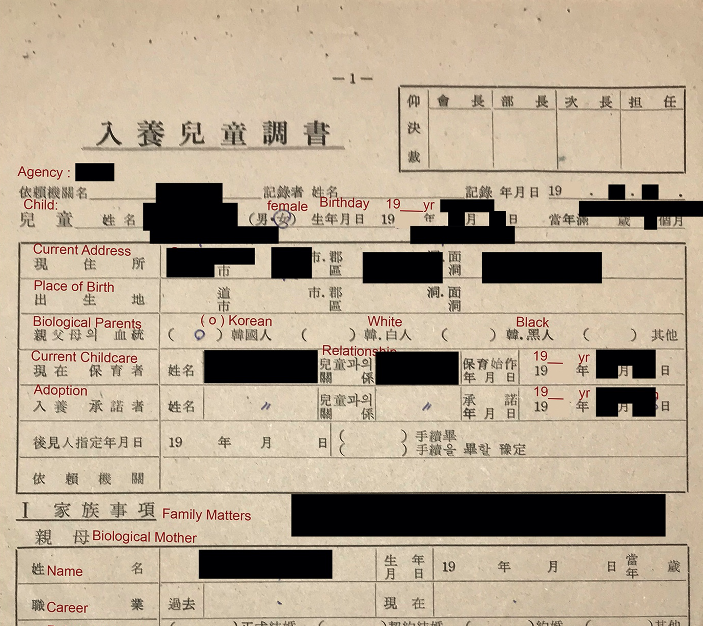 —1—
仰決裁 會長 部長 次長 担任
入養兒童調書
Agency :
依頼機關名 記錄者 姓名 記錄 年月日 19 . . .
Child: female Birthday 19__yr
兒童 姓名 (男.女) 生年月日 19 年 月 日 當年滿 歲 個月
Current Address
現住所 市 市.郡 區 洞.面 洞
Place of Birth
出生地 道 市 市.郡 區 洞.面 洞
Biological Parents ( o ) Korean White Black
親父母의 血統 ( o ) 韓國人 ( ) 韓.白人 ( ) 韓.黑人 ( ) 其他
Current Childcare Relationship 19__ yr
現在 保育者 姓名 兒童과의 關係 保育始作 年月日 19 年 月 日
Adoption 19__ yr
入養 承諾者 姓名 〃 兒童과의 關係 〃 承諾 年月日 19 年 月 日
後見人指定年月日 19 年 月 日 ( ) 手續畢
( ) 手續을 畢할 豫定
依頼機關
I 家族事項 Family Matters
親母 Biological Mother
姓名 Name 生年月日 19 年 月 日 當年 歲
職業 Career 過去 現在